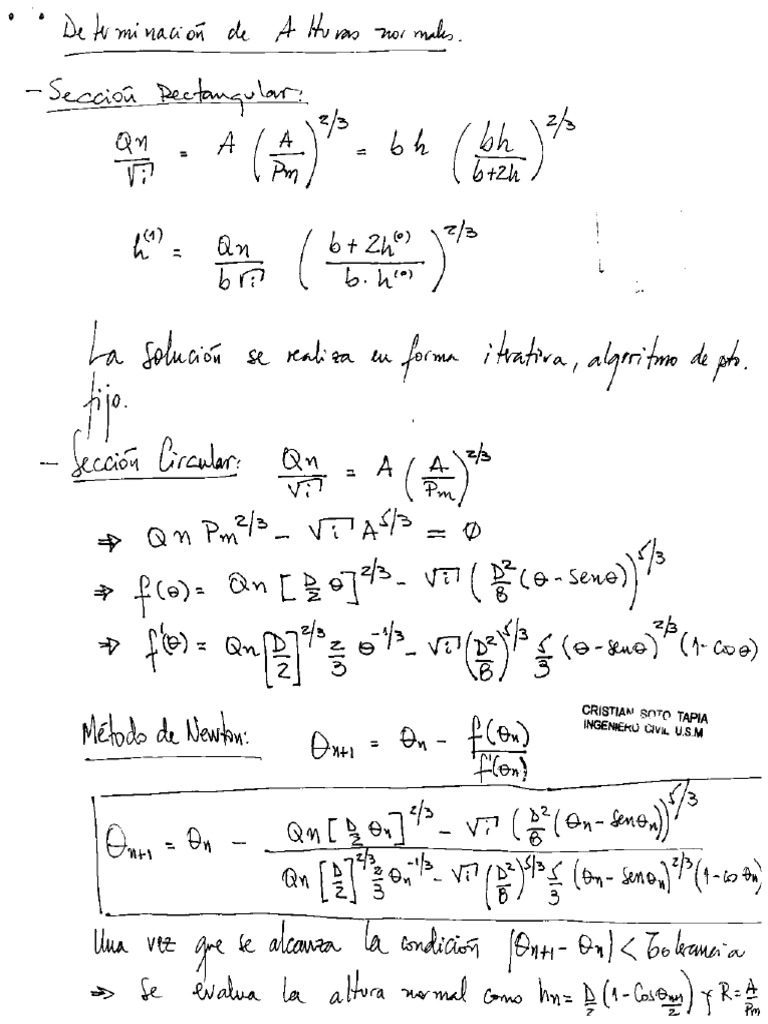 Determinación de Alturas normales.
- Sección Rectangular:
Qn/√i = A (A/Pm)^2/3 = bh (bh/b+2h)^2/3
h^(1) = Qn/b√i (b+2h^(0)/b·h^(0))^2/3
La solución se realiza en forma iterativa, algoritmo de pto.
fijo.
- Sección Circular: Qn/√i = A (A/Pm)^2/3
⇒ Qn Pm^2/3 - √i A^5/3 = 0
⇒ f(θ) = Qn [D/2 θ]^2/3 - √i (D²/8 (θ - senθ))^5/3
⇒ f'(θ) = Qn [D/2]^2/3 2/3 θ^-1/3 - √i (D²/8)^5/3 5/3 (θ - senθ)^2/3 (1 - cosθ)
CRISTIAN SOTO TAPIA
INGENIERO CIVIL U.S.M
Método de Newton: θn+1 = θn - f(θn)/f'(θn)
θn+1 = θn - Qn [D/2 θn]^2/3 - √i (D²/8 (θn - senθn))^5/3 / Qn [D/2]^2/3 2/3 θn^-1/3 - √i (D²/8)^5/3 5/3 (θn - senθn)^2/3 (1 - cosθn)
Una vez que se alcanza la condición |θn+1 - θn| < Tolerancia
⇒ Se evalua la altura normal como hn = D/2 (1 - Cos θn+1/2) y R = A/Pm